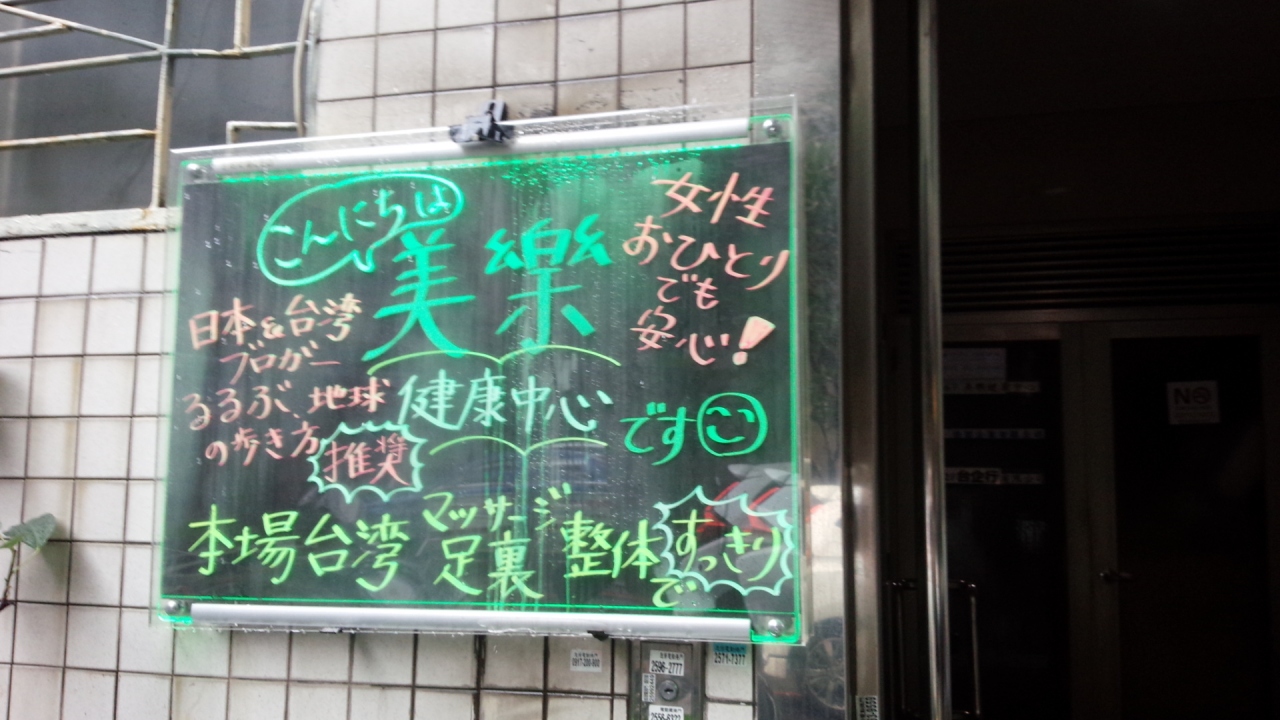 こんにちは
美樂
健康中心
です
女性
おひとり
でも
安心!
日本&台湾
ブロガー
るるぶ、地球
の歩き方
推奨
本場台湾
マッサージ
足裏
整体
で
すっきり
2596-2777
2571-7377